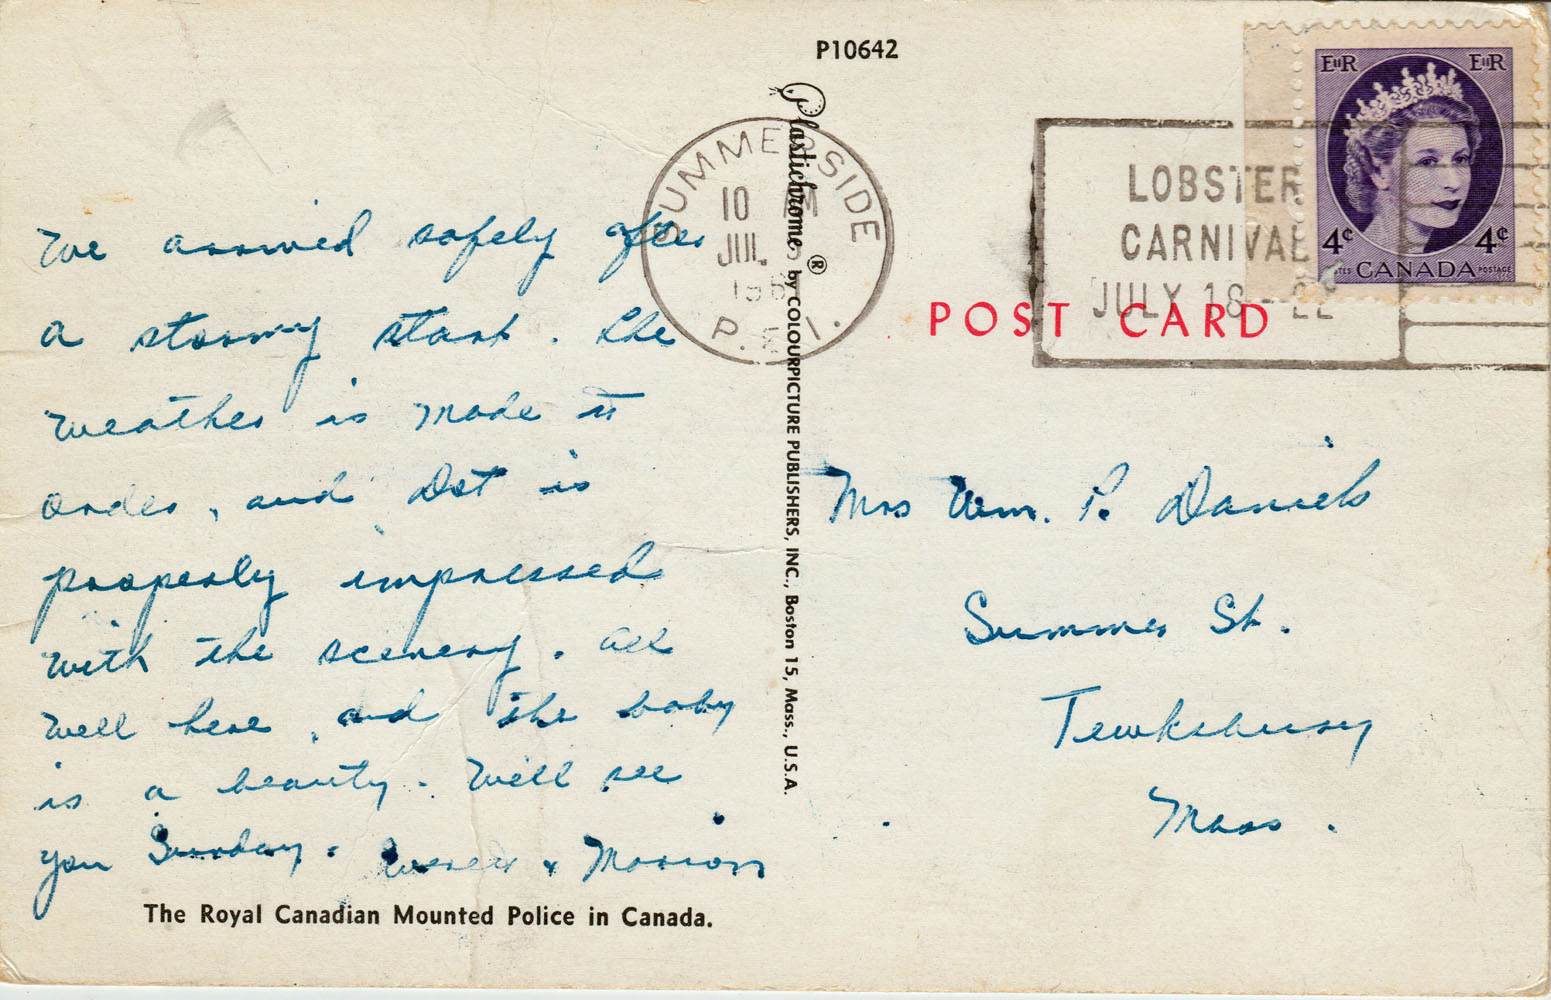 P10642
Plastichrome® by COLOURPICTURE PUBLISHERS, INC., Boston 15, Mass., U.S.A.
E II R E II R
4¢ 4¢
CANADA POSTAGE
SUMMERSIDE
10 PM
JUL
P.E.I.
LOBSTER
CARNIVAL
JULY 18 - 22
POST CARD
We arrived safely after
a stormy start. The
weather is made to
order, and Dot is
properly impressed
with the scenery. All
well here, and the baby
is a beauty. Will see
you Sunday. & Marion
Mrs Wm. P. Daniels
Summer St.
Tewksbury
Mass.
The Royal Canadian Mounted Police in Canada.